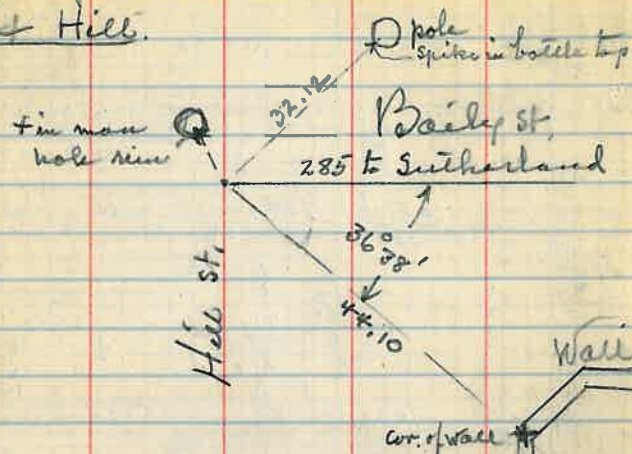 & Hill.
pole
spike in bottle top
32.12
+ in man
hole rim
Baily St.
285 to Sutherland
36° 38'
Hill St.
44.10
Wall
cor. of wall